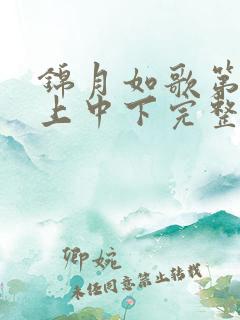 錦月如歌第
上中下完整
卿婉
未经同意禁止转载